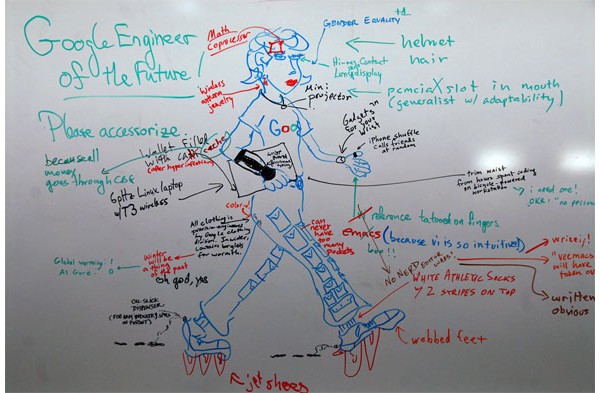 Google Engineer
of the Future
Math
Coprocessor
GENDER EQUALITY
+1
helmet
hair
Contact
Lens display
pcmciaX slot in mouth
(generalist w/ adaptability)
Wireless
jewelry
Mini
projector
Goo
Gadgets
for your
wrist
iPhone shuffle
calls friends
at random
Please accessorize
because all
money
goes through CBG
Wallet filled
with cash
(after hyperinflation)
6 GHz Linux laptop
w/ T3 wireless
trim waist
from hours spent coding
on bicycle-powered
workstation
i need one!
OKR:
reference tatooed on fingers
emacs (because vi is so intuitive)
boo!!
color
All clothing is
by Google clothing
division. In winter
contains
for warmth.
can
never
have
too
many
pockets
Winter
will be
a thing
of the past
Global warming!
Al Gore
oh god, yes
NO NEED FOR
WHITE ATHLETIC SOCKS
w/ 2 STRIPES ON TOP
will have
taken over
written
obvious
OIL SLICK
DISPENSER
webbed feet
jet shoes